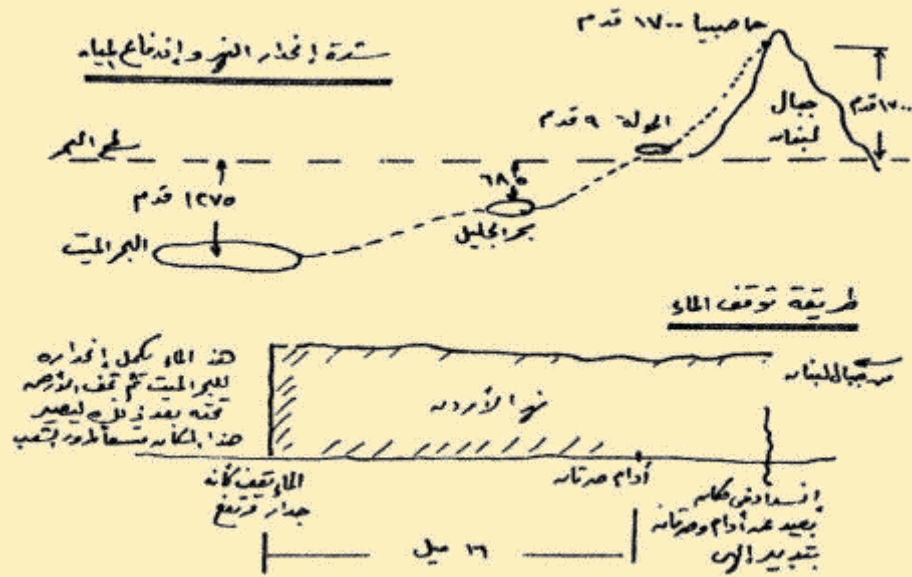 شدة إنحدار النهر وإندفاع المياه
حاصبيا ١٧٠٠ قدم
جبال
لبنان
١٧٠٠ قدم
الحولة ٩ قدم
سطح البحر
٦٨٥
١٢٧٥ قدم
بحر الجليل
البحر الميت
طريقة توقف الماء
من جبال لبنان
هذا الماء يكمل إنحداره
للبحر الميت ثم تجف الأرض
تحته بعد ذلك ليصير
هذا المكان متسعاً لمرور الشعب
نهر الأردن
الماء يقف كأنه
جدار مرتفع
أدام صرتان
إنسداد فى مكان
بعيد عن أدام وصرتان
بتدبير إلهى
١٦ ميل